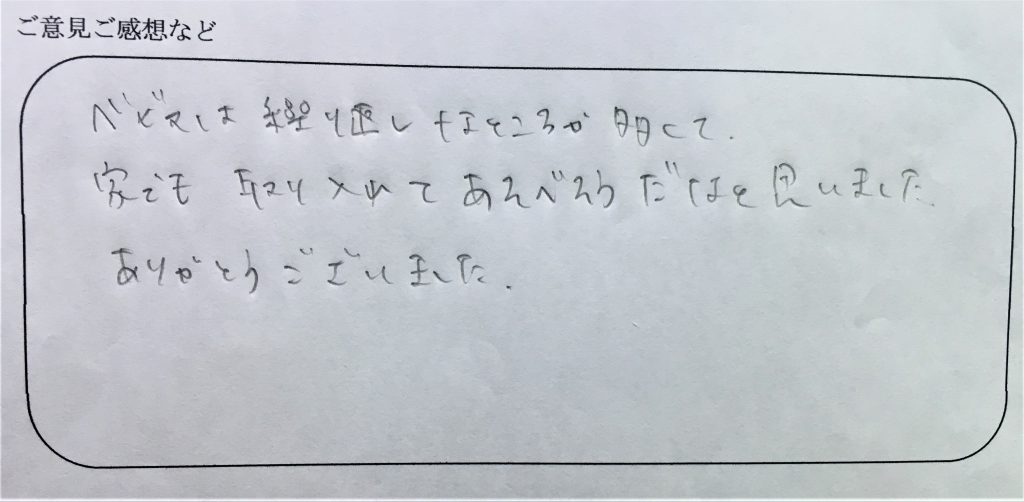 ご意見ご感想など
ベビマは繰り返しなところが多くて.
家でも取り入れてあそべそうだなと思いました
ありがとうございました.